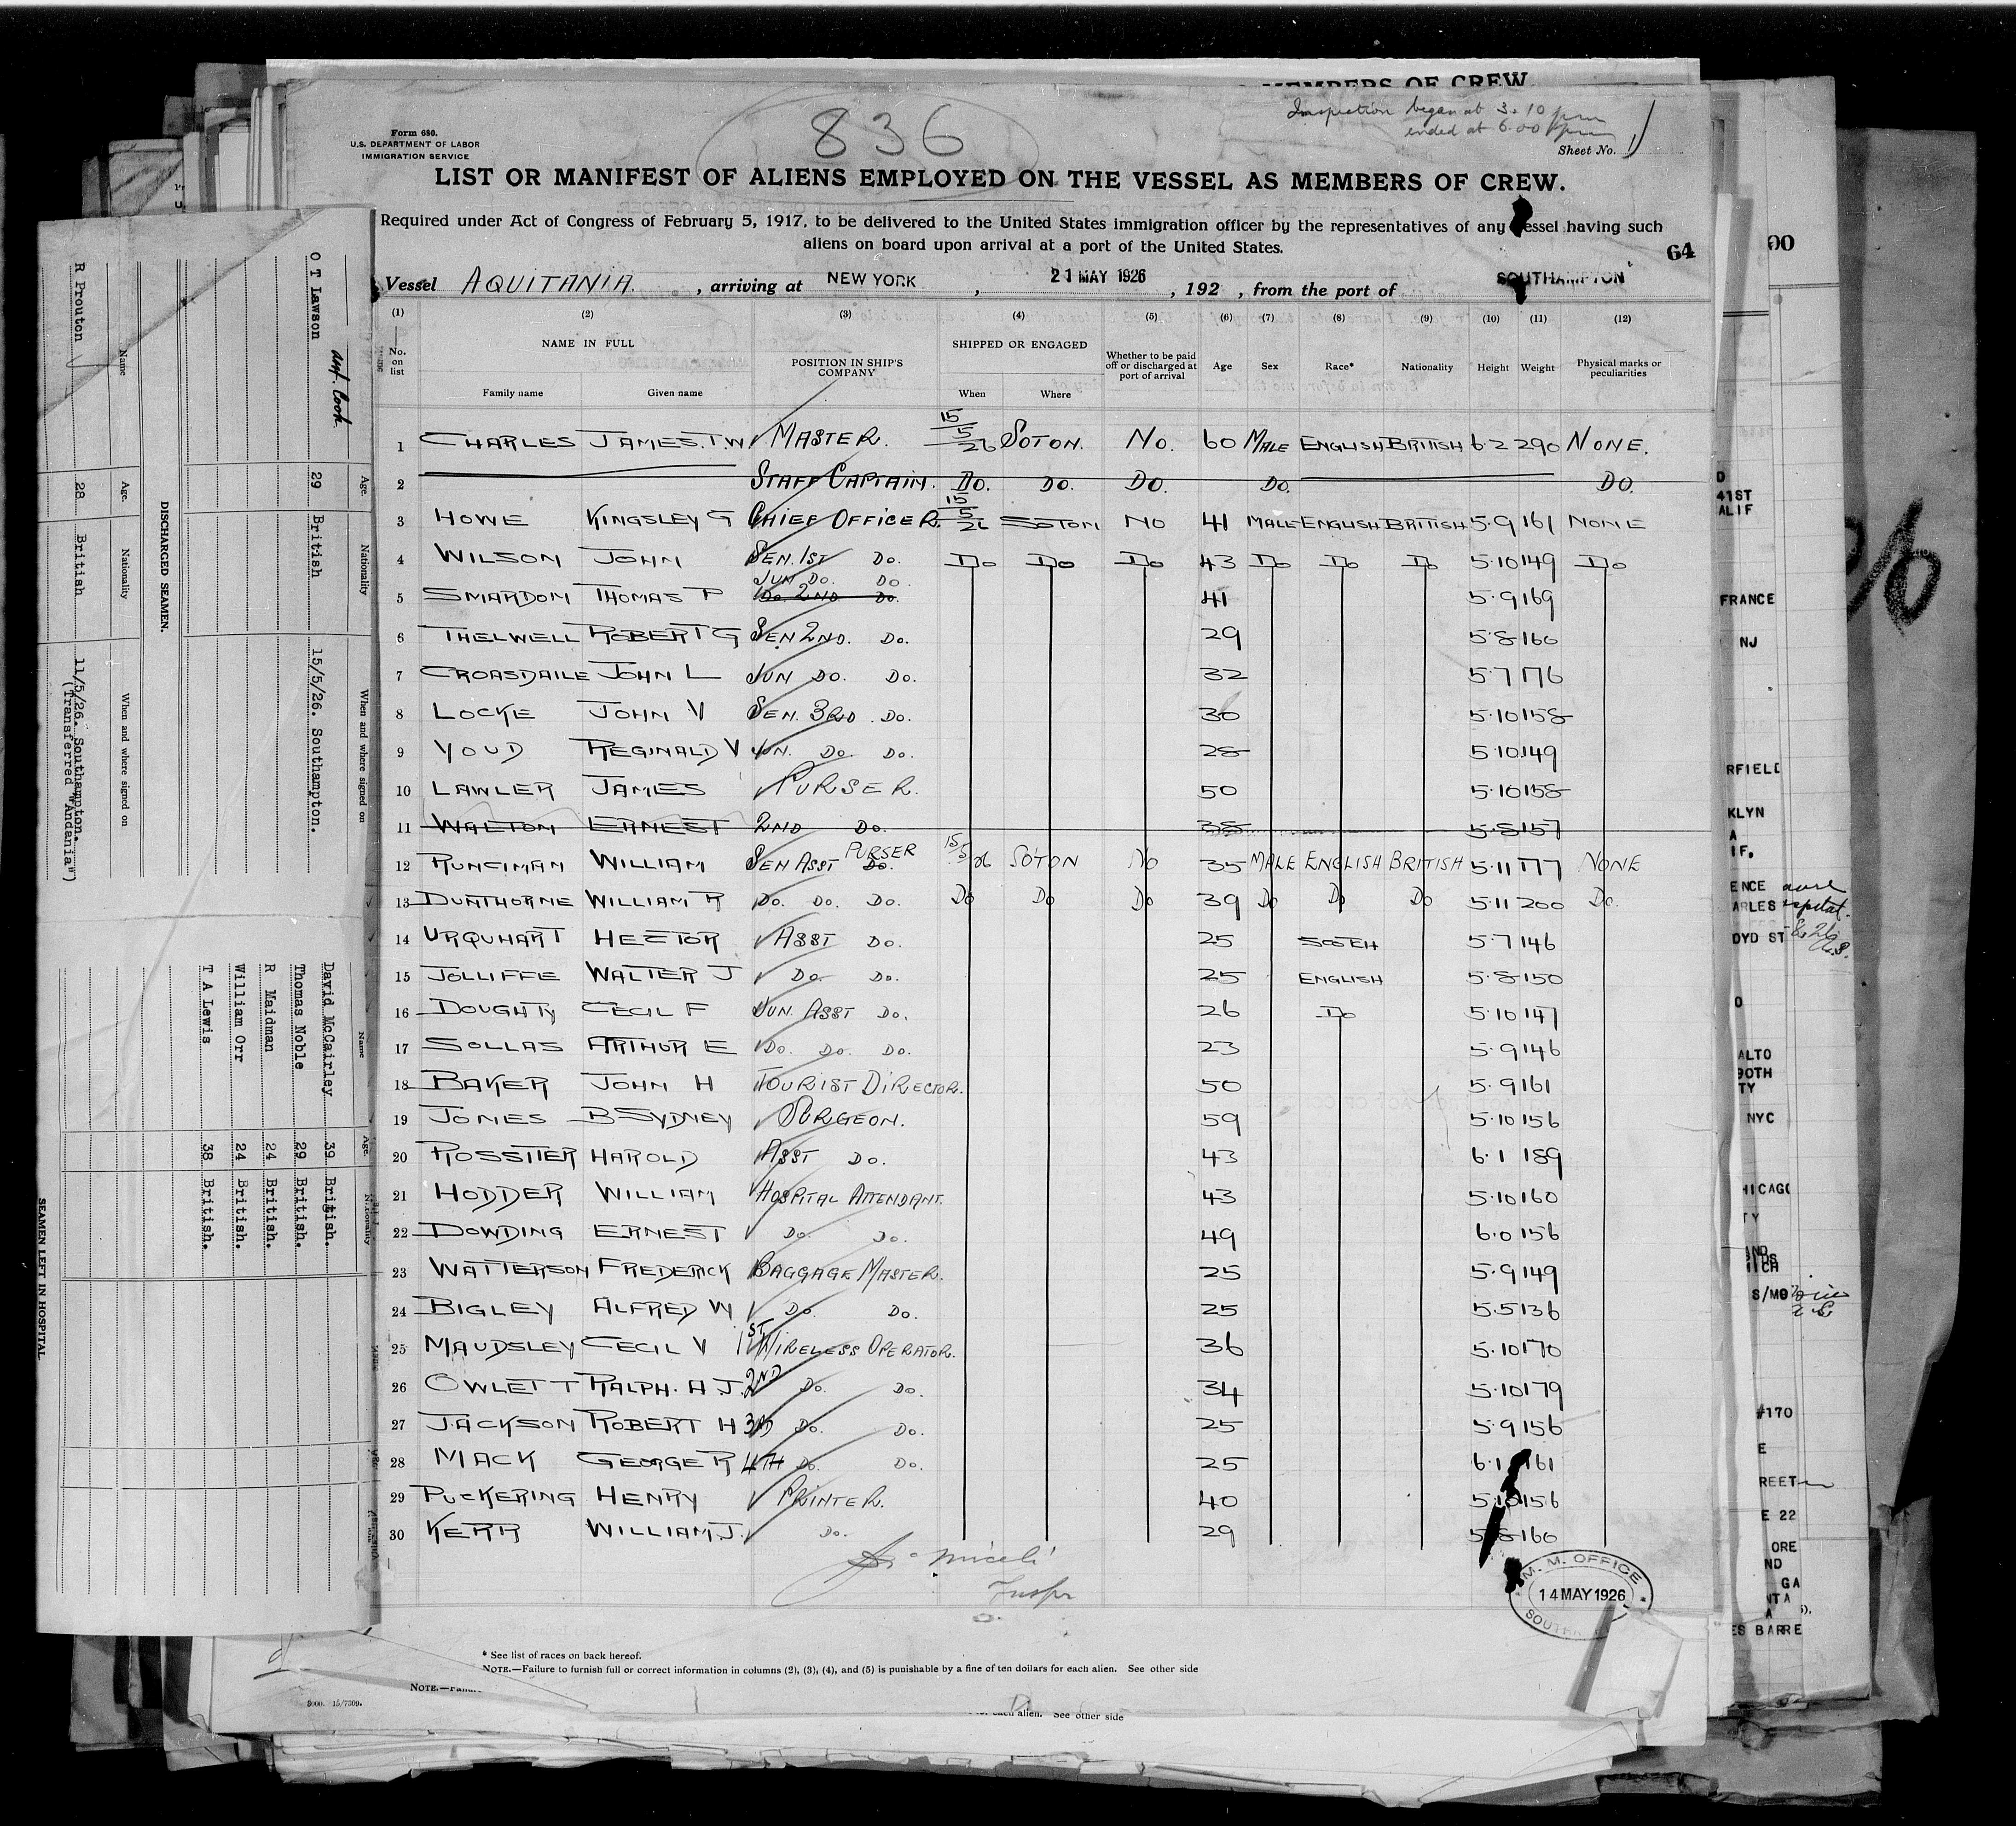 MEMBERS OF CREW.
Inspection began at 3.10 pm
ended at 6.00 pm
836
Form 680.
U.S. DEPARTMENT OF LABOR
IMMIGRATION SERVICE
Sheet No. 1
LIST OR MANIFEST OF ALIENS EMPLOYED ON THE VESSEL AS MEMBERS OF CREW.
Required under Act of Congress of February 5, 1917, to be delivered to the United States immigration officer by the representatives of any vessel having such
aliens on board upon arrival at a port of the United States.
64
Vessel AQUITANIA. , arriving at NEW YORK , 21 MAY 1926 , 192 , from the port of SOUTHAMPTON
(1) (2) (3) (4) (5) (6) (7) (8) (9) (10) (11) (12)
No. on list NAME IN FULL Family name Given name POSITION IN SHIP'S COMPANY SHIPPED OR ENGAGED When Where Whether to be paid off or discharged at port of arrival Age Sex Race* Nationality Height Weight Physical marks or peculiarities
1 CHARLES JAMES.T.W MASTER. 15/5/26 SOTON. NO. 60 MALE ENGLISH BRITISH 6.2 290 NONE.
2 STAFF CAPTAIN. DO. DO. DO. DO. DO.
3 HOWE KINGSLEY G CHIEF OFFICER. 15/5/26 SOTON NO 41 MALE ENGLISH BRITISH 5.9 161 NONE
4 WILSON JOHN SEN. 1ST DO. DO DO DO 43 DO DO DO 5.10 149 DO
JUN DO. DO
5 SMARDON THOMAS P DO. 2ND DO. 41 5.9 169
6 THELWELL ROBERT G SEN 2ND. DO. 29 5.8 160
7 CROASDAILE JOHN L JUN DO. DO. 32 5.7 176
8 LOCKE JOHN V SEN. 3RD. DO. 30 5.10 158
9 YOUD REGINALD V JUN. DO. DO. 28 5.10 149
10 LAWLER JAMES PURSER. 50 5.10 158
11 WALTON ERNEST 2ND DO. 38 5.8 157
12 RUNCIMAN WILLIAM SEN ASST DO. PURSER 15/5/26 SOTON NO 35 MALE ENGLISH BRITISH 5.11 177 NONE
13 DUNTHORNE WILLIAM R DO. DO. DO. DO DO DO 39 DO DO DO 5.11 200 DO.
14 URQUHART HECTOR ASST DO. 25 SCOTCH 5.7 146
15 JOLLIFFE WALTER J DO. DO. 25 ENGLISH 5.8 150
16 DOUGHTY CECIL F JUN. ASST DO. 26 DO 5.10 147
17 SOLLAS ARTHUR E DO. DO. DO. 23 5.9 146
18 BAKER JOHN H TOURIST DIRECTOR. 50 5.9 161
19 JONES B SYDNEY SURGEON. 59 5.10 156
20 ROSSITER HAROLD ASST DO. 43 6.1 189
21 HODDER WILLIAM HOSPITAL ATTENDANT. 43 5.10 160
22 DOWDING ERNEST DO. DO. 49 6.0 156
23 WATTERSON FREDERICK BAGGAGE MASTER. 25 5.9 149
24 BIGLEY ALFRED W DO. DO. 25 5.5 136
25 MAUDSLEY CECIL V 1ST WIRELESS OPERATOR. 36 5.10 170
26 OWLETT RALPH. A.J. 2ND DO. DO. 34 5.10 179
27 JACKSON ROBERT H 3RD DO. DO. 25 5.9 156
28 MACK GEORGE R 4TH DO. DO. 25 6.1 161
29 PUCKERING HENRY PRINTER. 40 5.10 156
30 KERR WILLIAM J. DO. 29 5.8 160
Miceli
Inspr
M. M. OFFICE
14 MAY 1926
* See list of races on back hereof.
NOTE.—Failure to furnish full or correct information in columns (2), (3), (4), and (5) is punishable by a fine of ten dollars for each alien. See other side
NOTE.—
5000. 15/7309.
each alien. See other side
Name Age. Nationality When and where signed on
O T Lawson 29 British 15/5/26. Southampton.
ant. Cook
DISCHARGED SEAMEN.
Name Age. Nationality When and where signed on
R Prouton 28 British 11/5/26. Southampton.
(Transferred "Andania")
Name Age. Nationality
David McCairley 39 British.
Thomas Noble 29 British.
R Maidman 24 British.
William Orr 24 British.
T A Lewis 38 British.
SEAMEN LEFT IN HOSPITAL
00
D
41ST
ALIF
FRANCE
NJ
RFIELD
KLYN
A
IF.
ENCE
ARLES
DYD ST
O
ALTO
90TH
TY
NYC
HICAGO
TY
AND
ICH
S/MO
#170
E
REET
E 22
ORE
ND
GA
NTA
A
ES BARRE